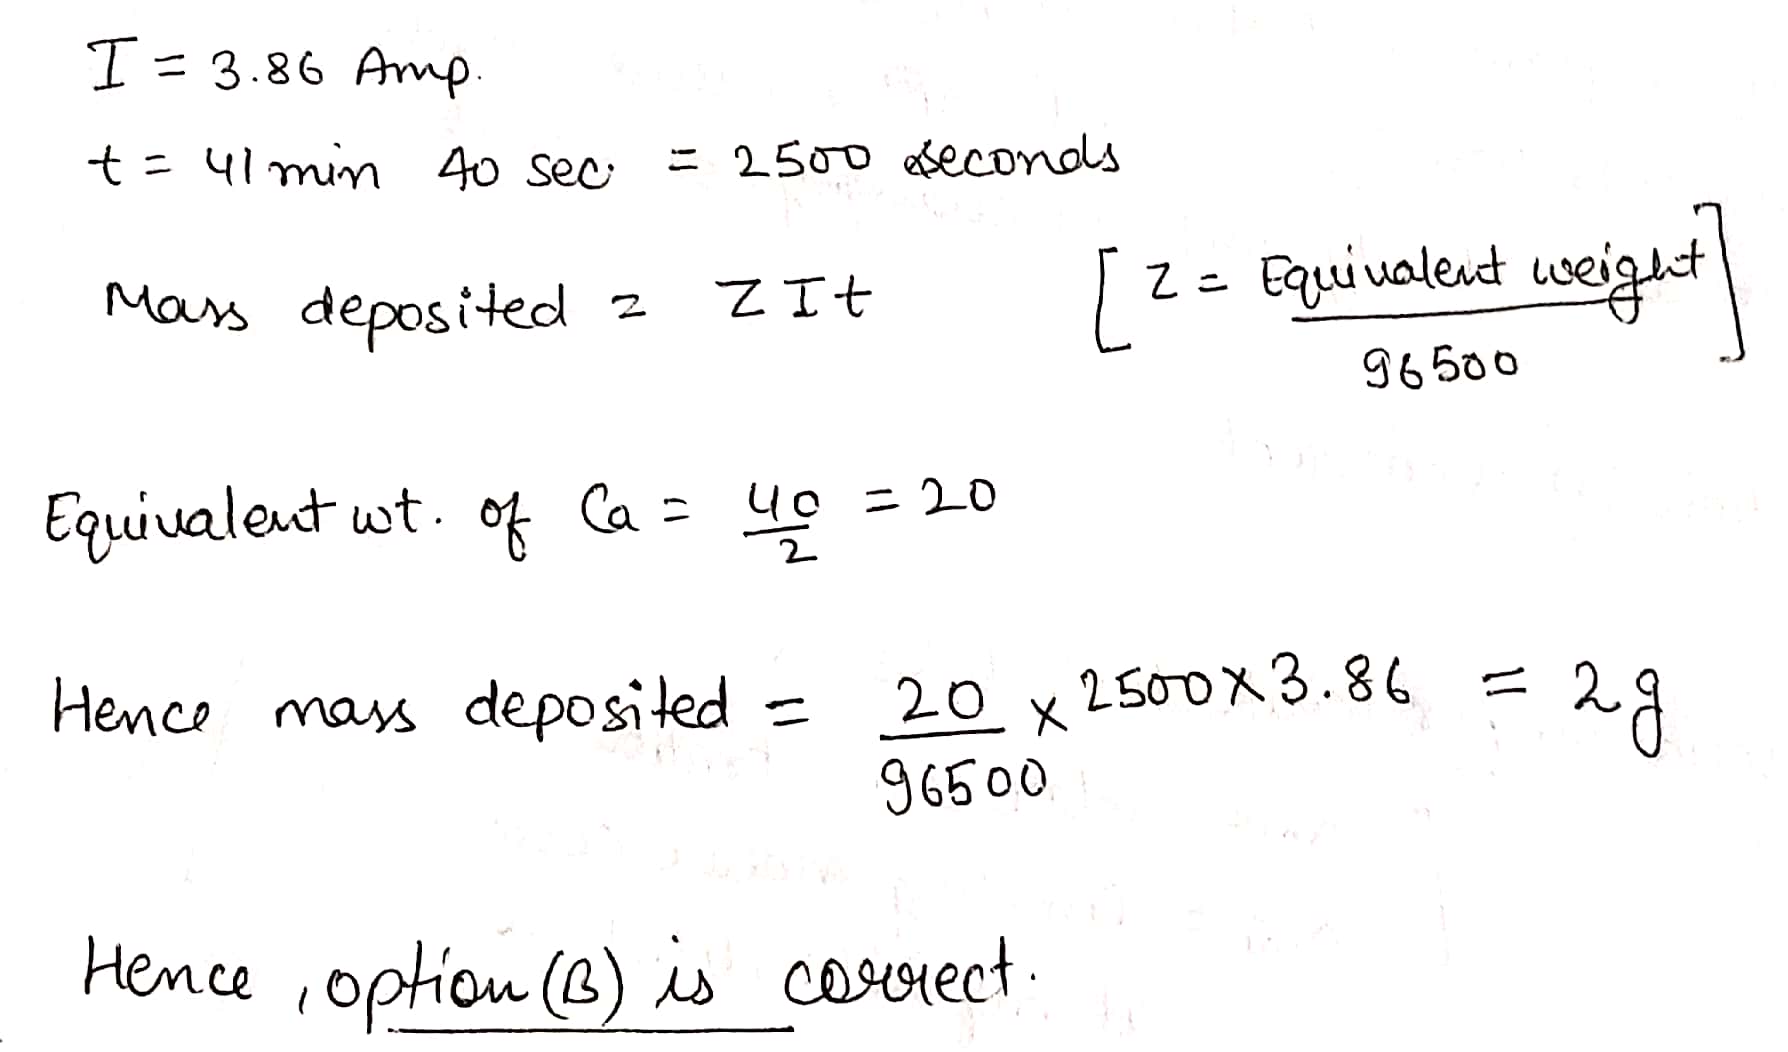 I = 3.86 Amp.
t = 41 min 40 sec. = 2500 seconds
Mass deposited = ZIt [Z = Equivalent weight / 96500]
Equivalent wt. of Ca = 40/2 = 20
Hence mass deposited = 20/96500 × 2500 × 3.86 = 2g
Hence, option (B) is correct.